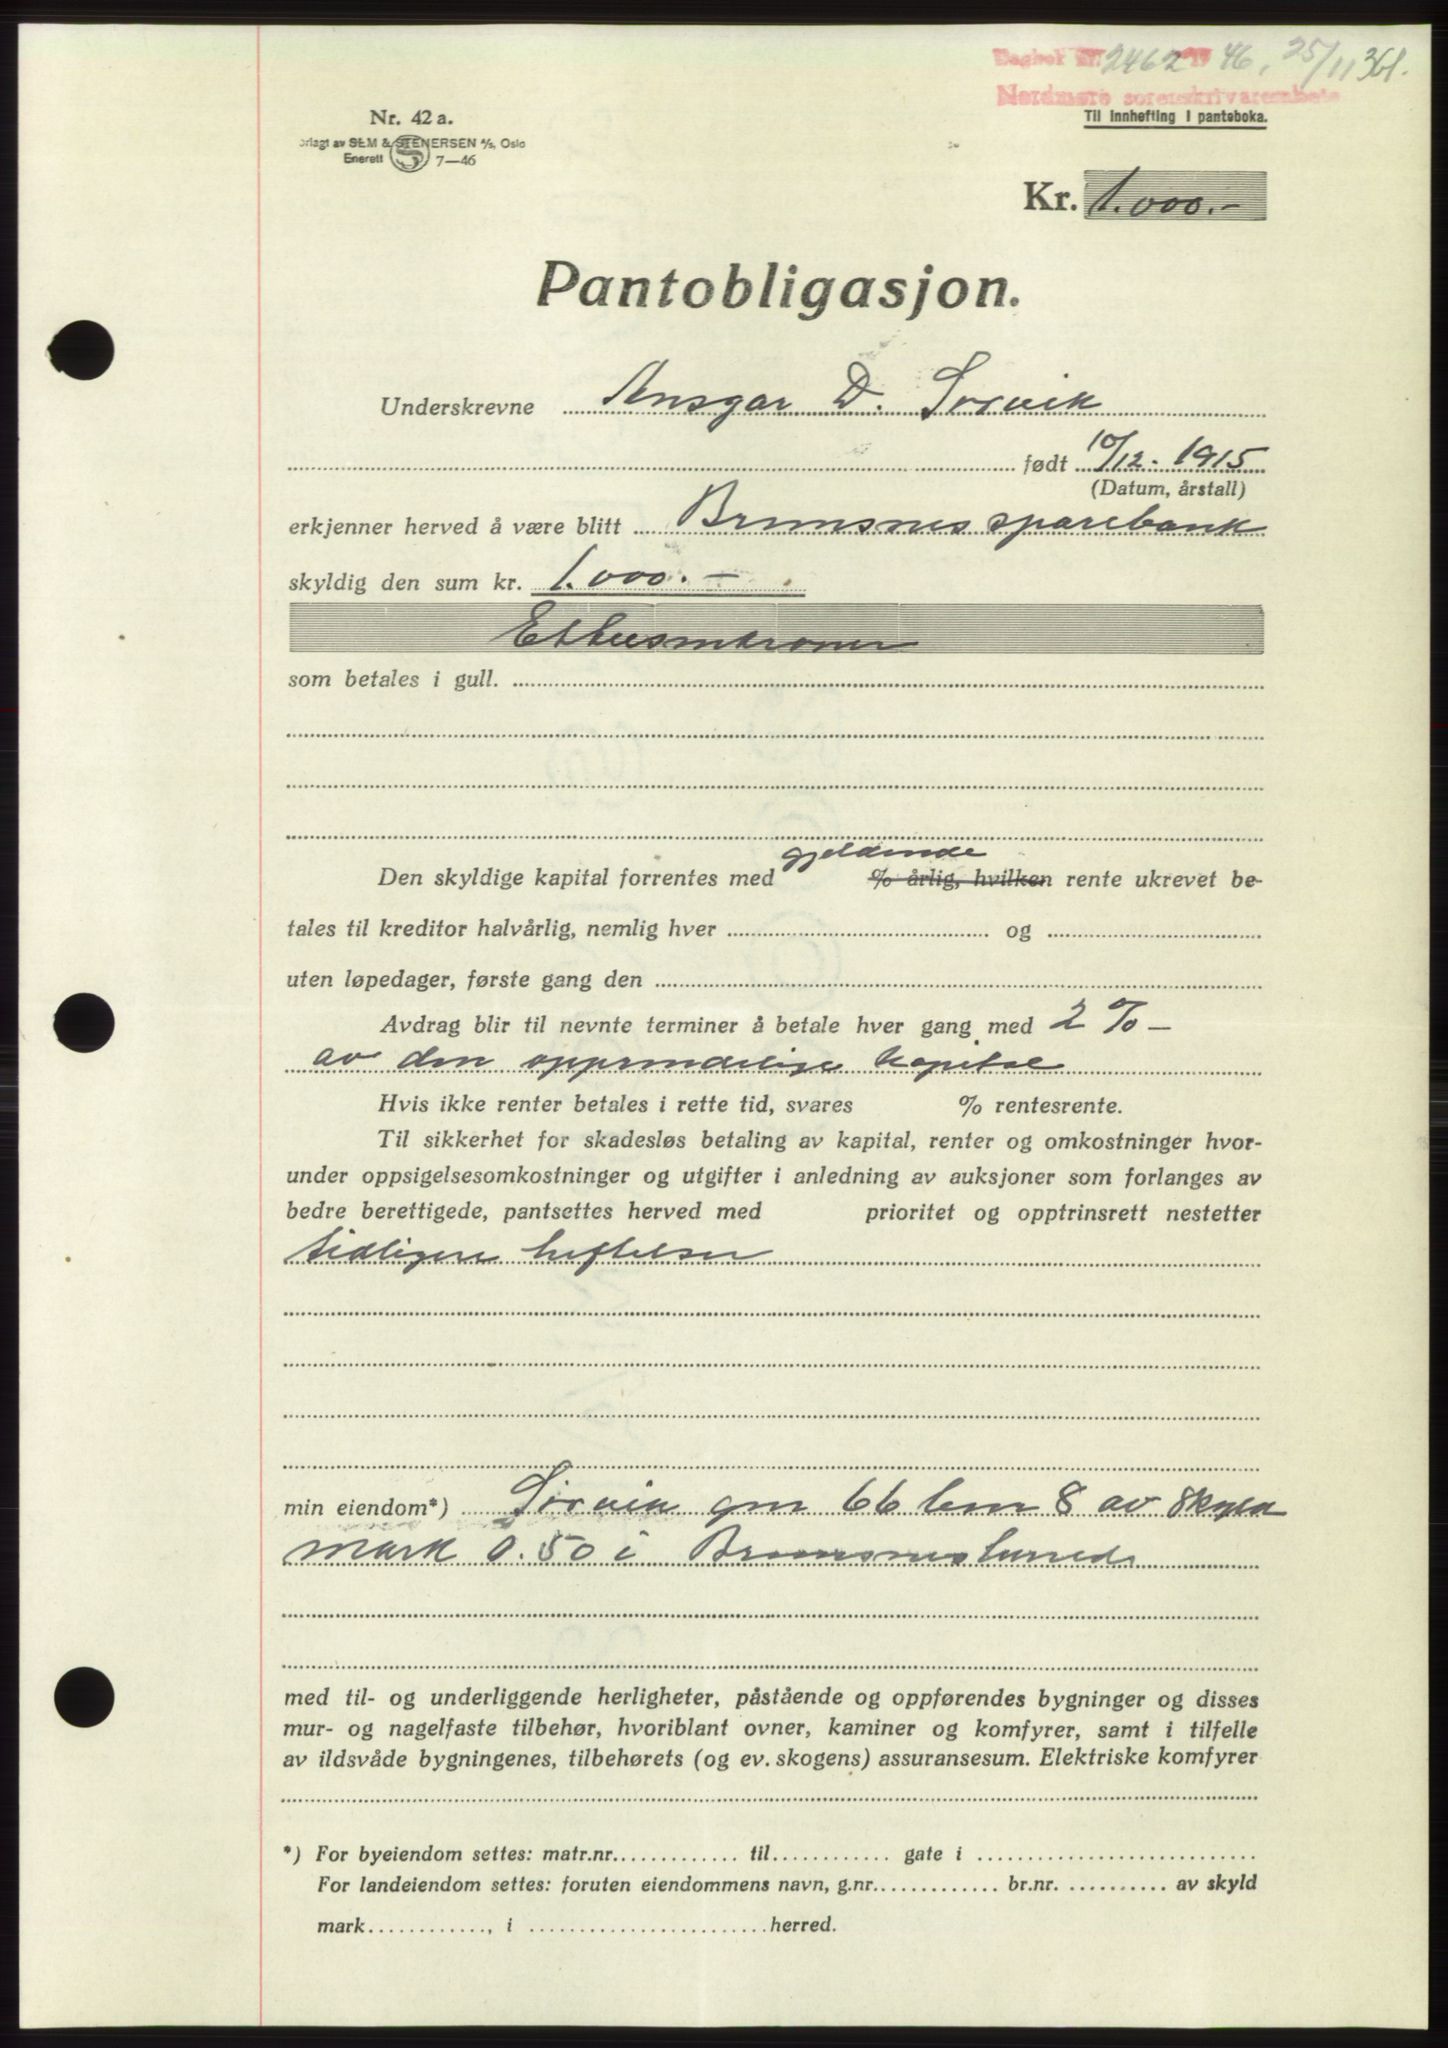 Dagbok nr. 2462 19 46, 25/11 361.
Nordmøre sorenskrivarembete
Til innhefting i panteboka.
Nr. 42 a.
orlagt av SEM & STENERSEN A/S, Oslo
Enerett 7—46
Kr. 1.000.-
Pantobligasjon.
Underskrevne Ansgar D. Sørvik
født 10/12. 1915
(Datum, årstall)
erkjenner herved å være blitt Bremsnes sparebank
skyldig den sum kr. 1.000.-
Ettusenkroner
som betales i gull.
gjeldende
Den skyldige kapital forrentes med % årlig, hvilken rente ukrevet be-
tales til kreditor halvårlig, nemlig hver og
uten løpedager, første gang den
Avdrag blir til nevnte terminer å betale hver gang med 2 % —
av den opprindelige kapital
Hvis ikke renter betales i rette tid, svares % rentesrente.
Til sikkerhet for skadesløs betaling av kapital, renter og omkostninger hvor-
under oppsigelsesomkostninger og utgifter i anledning av auksjoner som forlanges av
bedre berettigede, pantsettes herved med prioritet og opptrinsrett nestetter
tidligere heftelser
min eiendom*) Sørvik gnr 66 bnr 8 av skyld
mark 0.50 i Bremsnes herred
med til- og underliggende herligheter, påstående og oppførendes bygninger og disses
mur- og nagelfaste tilbehør, hvoriblant ovner, kaminer og komfyrer, samt i tilfelle
av ildsvåde bygningenes, tilbehørets (og ev. skogens) assuransesum. Elektriske komfyrer
*) For byeiendom settes: matr.nr. ............. til ............ gate i ...........................
For landeiendom settes: foruten eiendommens navn, g.nr. ............. br.nr. ........... av skyld
mark ............., i .......................... herred.